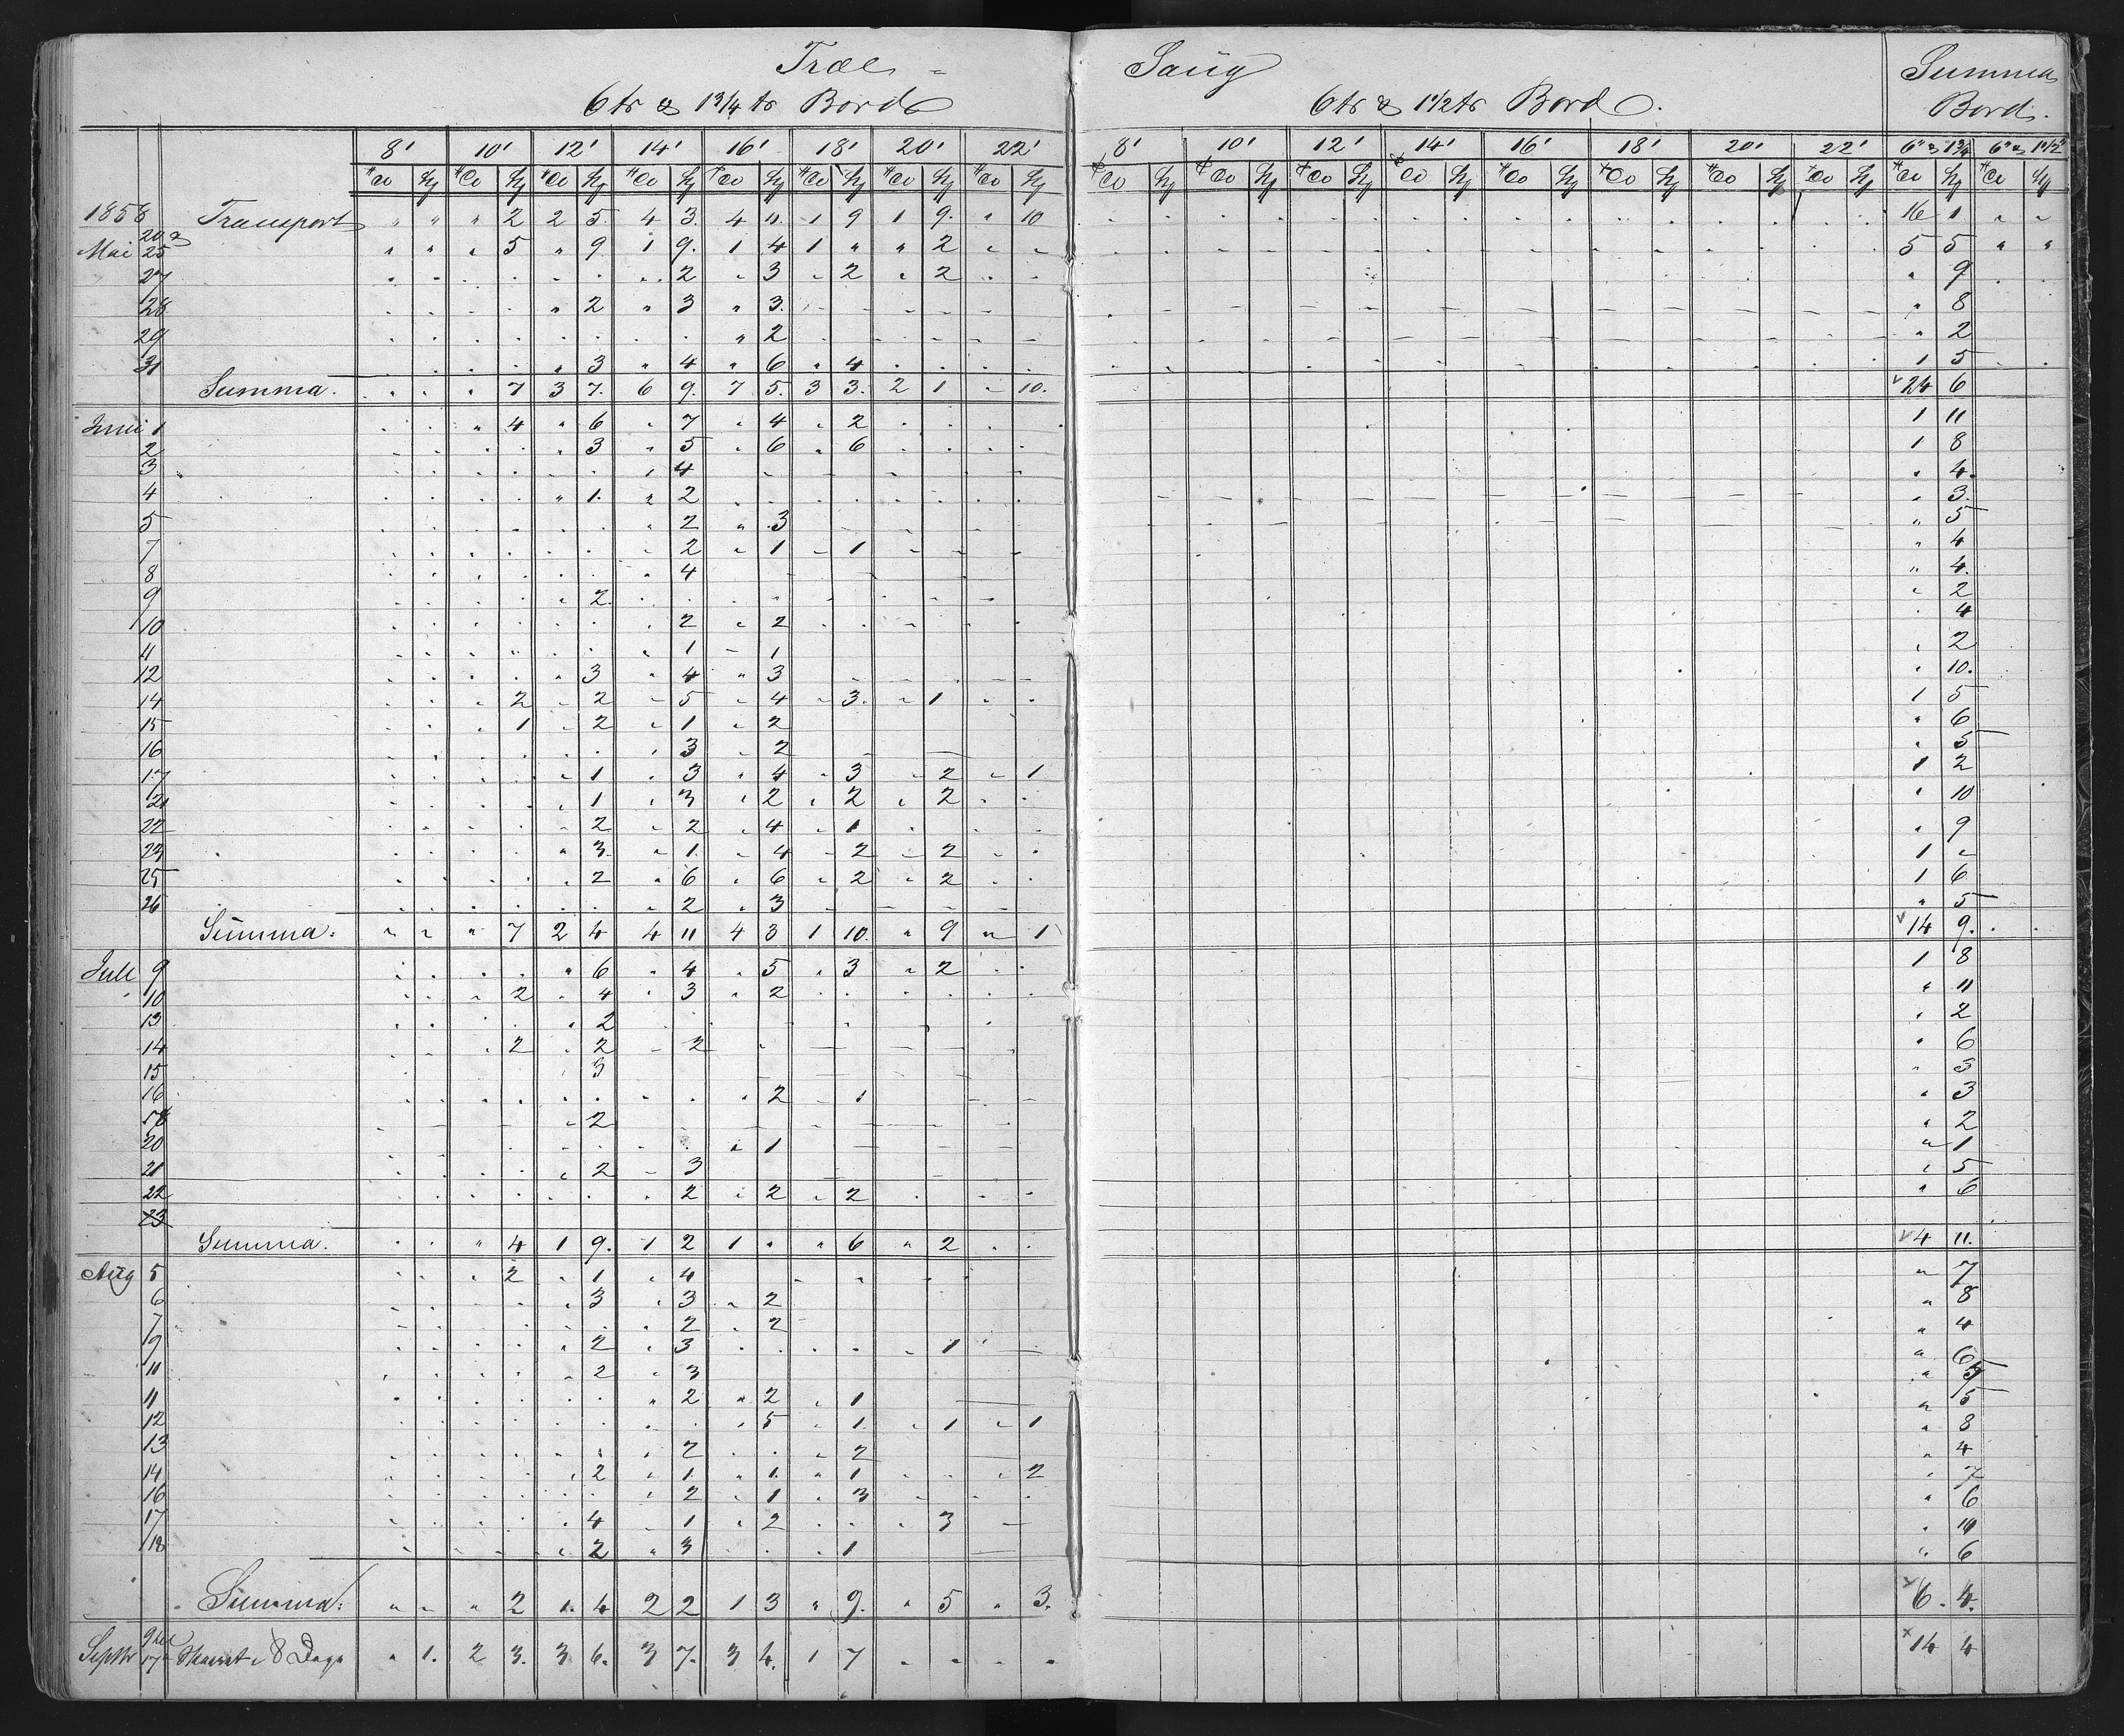 Træl - Saug Summa
6tr & 1 3/4 tr Bord 6tr & 1 1/2 tr Bord. Bord.
8' 10' 12' 14' 16' 18' 20' 22' 8' 10' 12' 14' 16' 18' 20' 22' 6" & 1 3/4 6" & 1 1/2"
1858 Transport " " " 2 2 5 4 3 4 11 1 9 1 9 " 10 16 1 " "
Mai 20 & 25 " " " 5 " 9 1 9 1 4 1 " " 2 " " 5 5 " "
27 2 " 3 " 2 " 2 " 9
28 " 2 " 3 " 3 " 8
29 " 2 " 2
31 " 3 " 4 " 6 " 4 1 5
Summa. " 7 3 7. 6 9. 7 5. 3 3. 2 1 " 10. 24 6
Juni 1 " 4 " 6 " 7 " 4 " 2 1 11
2 " 3 " 5 " 6 " 6 1 8
3 " 4 " 4.
4 " 1. " 2 " 3.
5 " 2 " 3 " 5
7 " 2 " 1 " 1 " 4
8 " 4 " 4.
9 " 2. " 2
10 " 2 " 2 " 4
11 " 1 " 1 " 2
12 " 3 " 4 " 3 " 10.
14 " 2 " 2 " 5 " 4 " 3. " 1 1 5
15 " 1 " 2 " 1 " 2 " 6
16 " 3 " 2 " 5
17 " 1 " 3 " 4 " 3 " 2 " 1 1 2
21 " 1 " 3 " 2 " 2 " 2 " 10
22 " 2 " 2 " 4 " 1 " 9
23 " 3 " 1. " 4 " 2 " 2 1 "
25 " 2 " 6 " 6 " 2 " 2 1 6
26 " 2 " 3 " 5
Summa. " " " 7 2 4 4 11 4 3 1 10. " 9 " 1 14 9.
Juli 9 " 6 " 4 " 5 " 3 " 2 1 8
10 " 2 " 4 " 3 " 2 " 11
13 " 2 " 2
14 " 2 " 2 " 2 " 6
15 " 3 " 3
16 " 2 " 1 " 3
18 " 2 " 2
20 " 1 " 1
21 " 2 " 3 " 5
22 " 2 " 2 " 2 " 6
23
Summa. " 4 1 9. 1 2 1 " " 6 " 2 4 11.
Aug 5 " 2 " 1 " 4 " 7
6 " 3 " 3 " 2 " 8
7 " 2 " 2 " 4
9 " 2 " 3 " 1 " 6
11 " 2 " 3 " 5
11 " 2 " 2 " 1 " 5
12 " 5 " 1 " 1 " 1 " 8
13 " 2 " 2 " 4
14 " 2 " 1 " 1 " 1 " 2 " 7
16 " 2 " 1 " 3 " 6
17 " 4 " 1 " 2 " 3 " 10
18 " 2 " 3 " 1 " 6
Summa. " " " 2 1. 4 2 2 1 3 " 9. " 5 " 3. 6. 4.
Septbr 9 til 17 i 8 Dage " 1. 2 3. 3 6. 3 7. 3 4. 1 7 14 4